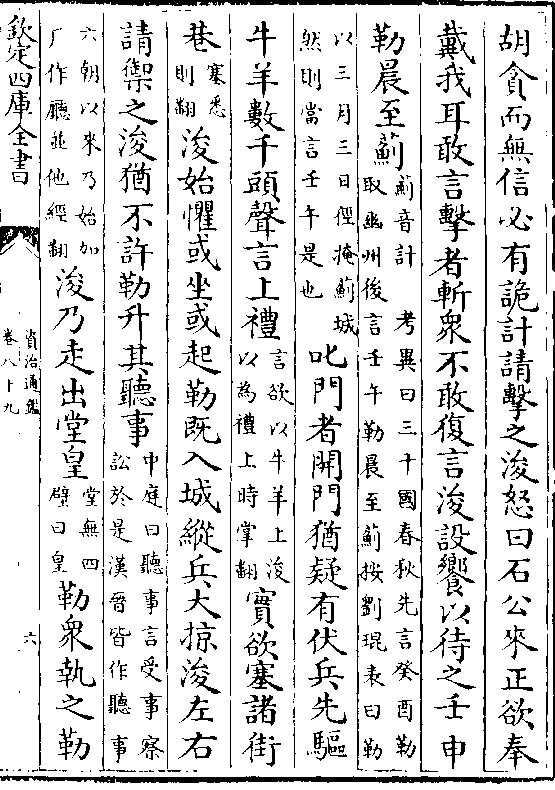 胡貪而無信必有詭計請擊之浚怒曰石公來正欲奉
戴我耳敢言擊者斬衆不敢復言浚設饗以待之壬申
勒晨至薊薊音計考異曰三十國春秋先言癸酉勒取幽州後言壬午勒晨至薊按劉琨表曰勒
以三月三日徑掩薊城然則當言壬午是也叱門者開門猶疑有伏兵先驅
牛羊數千頭聲言上禮言欲以牛羊上浚以為禮上時掌翻實欲塞諸街
巷塞悉則翻浚始懼或坐或起勒既入城縱兵大掠浚左右
請禦之浚猶不許勒升其聽事中庭曰聽事言受事察訟於是漢晉皆作聽事
六朝以來乃始加厂作廳並他經翻浚乃走出堂皇堂無四壁曰皇勒衆執之勒
欽定四庫全書
資治通鑑
卷八十九
六